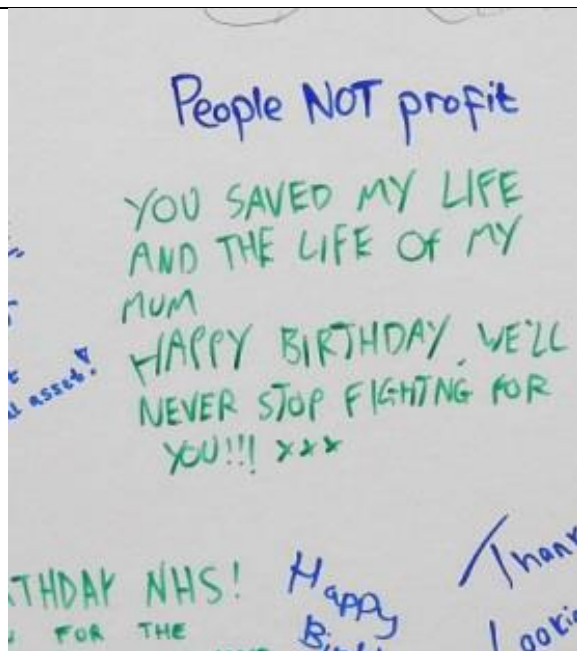 People NOT profit
YOU SAVED MY LIFE
AND THE LIFE OF MY
MUM
HAPPY BIRTHDAY. WE'LL
NEVER STOP FIGHTING FOR
YOU!!! xxx
asset!
THDAY NHS!
FOR THE
Happy
Thank